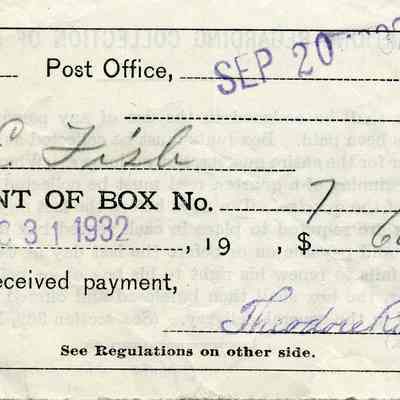 Post Office, SEP 20
C Fish
NT OF BOX No. 7
C 31 1932, 19, $ 6
eceived payment,
Theodore
See Regulations on other side.